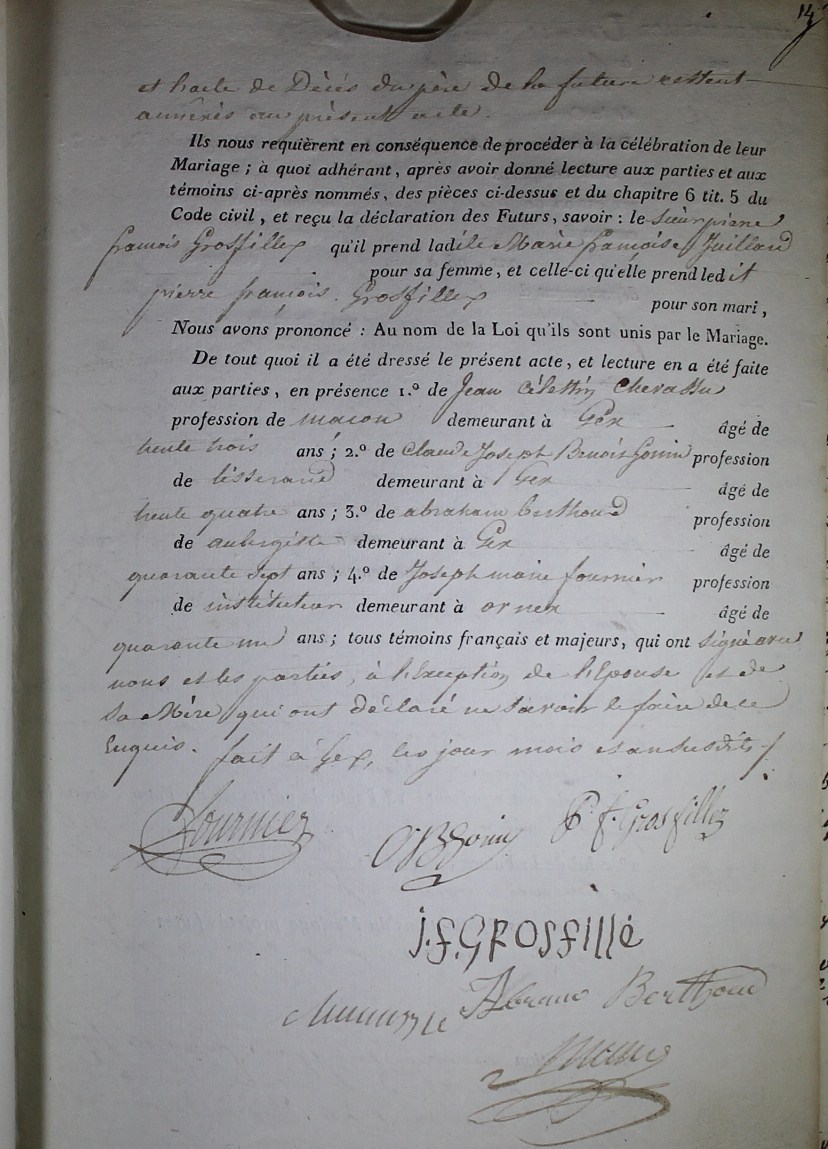 14
et l'acte de Décès du père de la future restent
annéxés au présent acte.
Ils nous requièrent en conséquence de procéder à la célébration de leur
Mariage ; à quoi adhérant, après avoir donné lecture aux parties et aux
témoins ci-après nommés, des pièces ci-dessus et du chapitre 6 tit. 5 du
Code civil, et reçu la déclaration des Futurs, savoir : le Sieur pierre
françois Grosfilley qu'il prend ladite Marie françoise Juilland
pour sa femme, et celle-ci qu'elle prend ledit
pierre françois Grosfilley pour son mari,
Nous avons prononcé : Au nom de la Loi qu'ils sont unis par le Mariage.
De tout quoi il a été dressé le présent acte, et lecture en a été faite
aux parties, en présence 1.º de Jean Célestin Chevassu
profession de macon demeurant à Gex âgé de
trente trois ans ; 2.º de Claude Joseph Benoit Gonin profession
de tisserand demeurant à Gex âgé de
trente quatre ans ; 3.º de abraham berthoud profession
de aubergiste demeurant à Gex âgé de
quarante sept ans ; 4.º de Joseph marie fournier profession
de instituteur demeurant à ornex âgé de
quarante un ans ; tous témoins français et majeurs, qui ont signé avec
nous et les parties, à l'Exception de l'Epouse et de
Sa Mère qui ont déclaré ne Savoir le faire de ce
Enquis. fait à Gex, les jour mois et an susdits
Fournier
CJBGonin
P. f. Grosfilley
j.f. GROSFILLé
Abram Berthoud